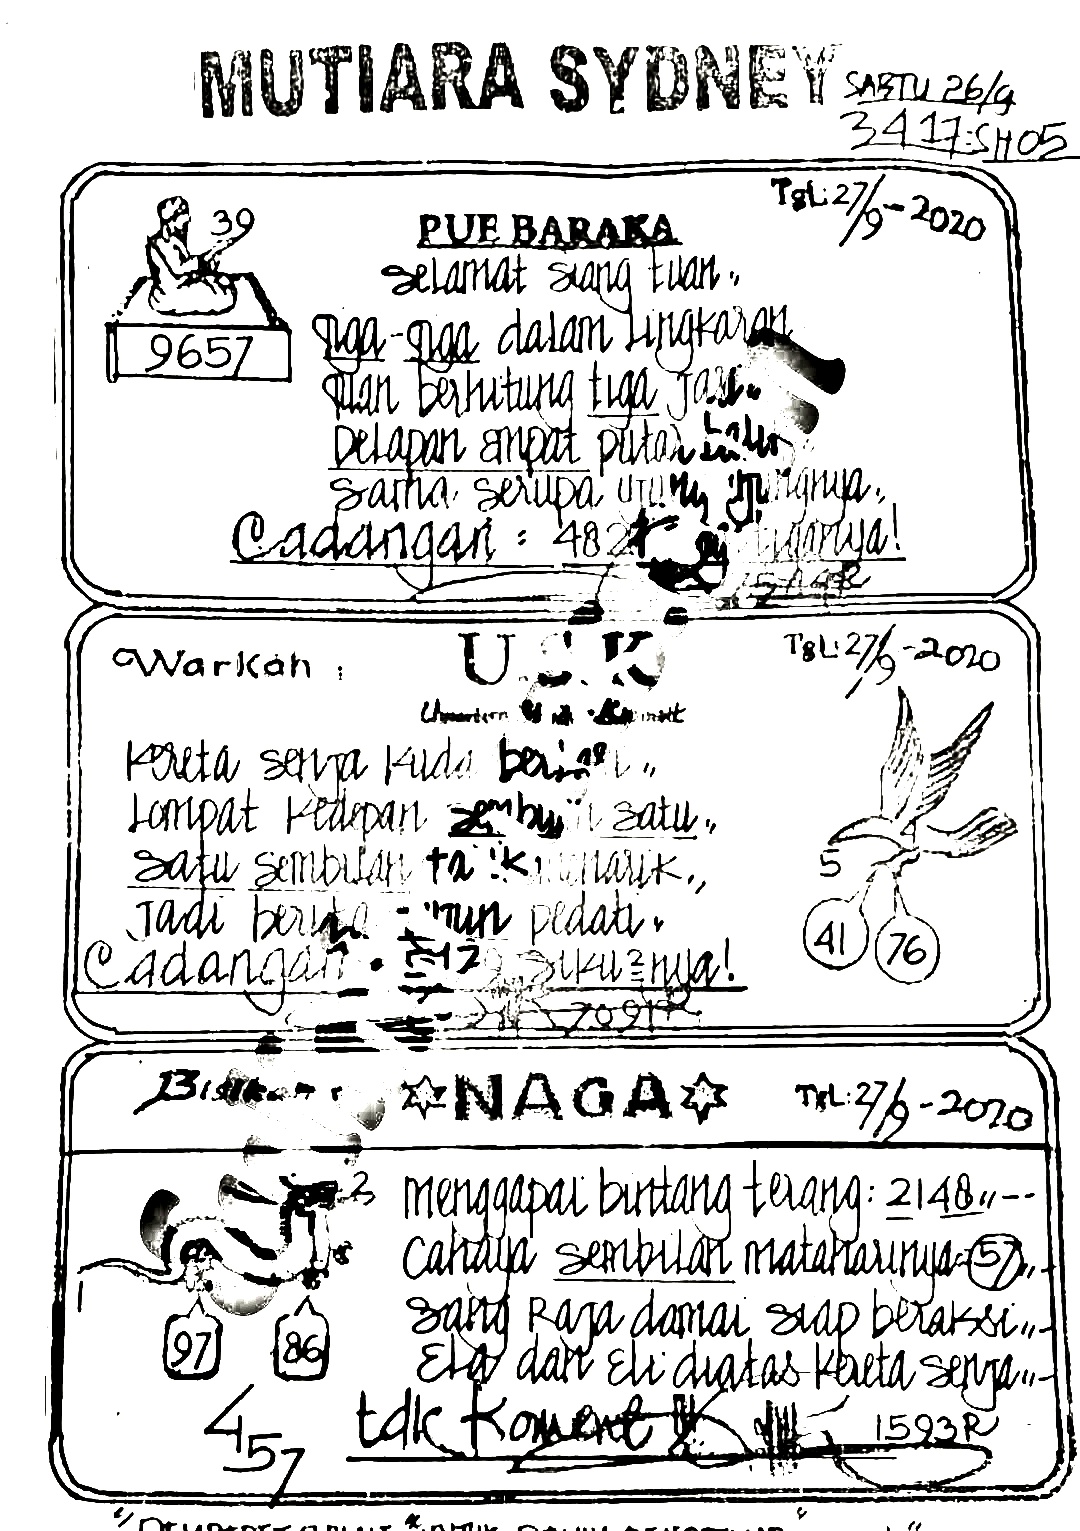 MUTIARA SYDNEY
SABTU 26/9
3417=SH05
39
9657
Tgl: 27/9-2020
PUE BARAKA
Selamat siang tuan,,
Tiga-tiga dalam lingkaran
Dan berhitung tiga
Delapan empat putar
Sama serupa ujung
Cadangan : 482
Warkah :
U.S.K
Tgl: 27/9-2020
Kereta senja kuda
Lompat kedepan sembilan satu,,
Satu sembilan tarik menarik,,
Jadi berita pedati,
Cadangan
5
4
41
76
7091R
Bisikan :
NAGA
Tgl: 27/9-2020
2
97
86
457
Menggapai bintang terang: 2148,,--
Cahaya sembilan mataharinya=57,,-
Sang Raja damai siap beraksi,,-
Ela dan Eli diatas kereta senja,,-
tdk Koment
1593R